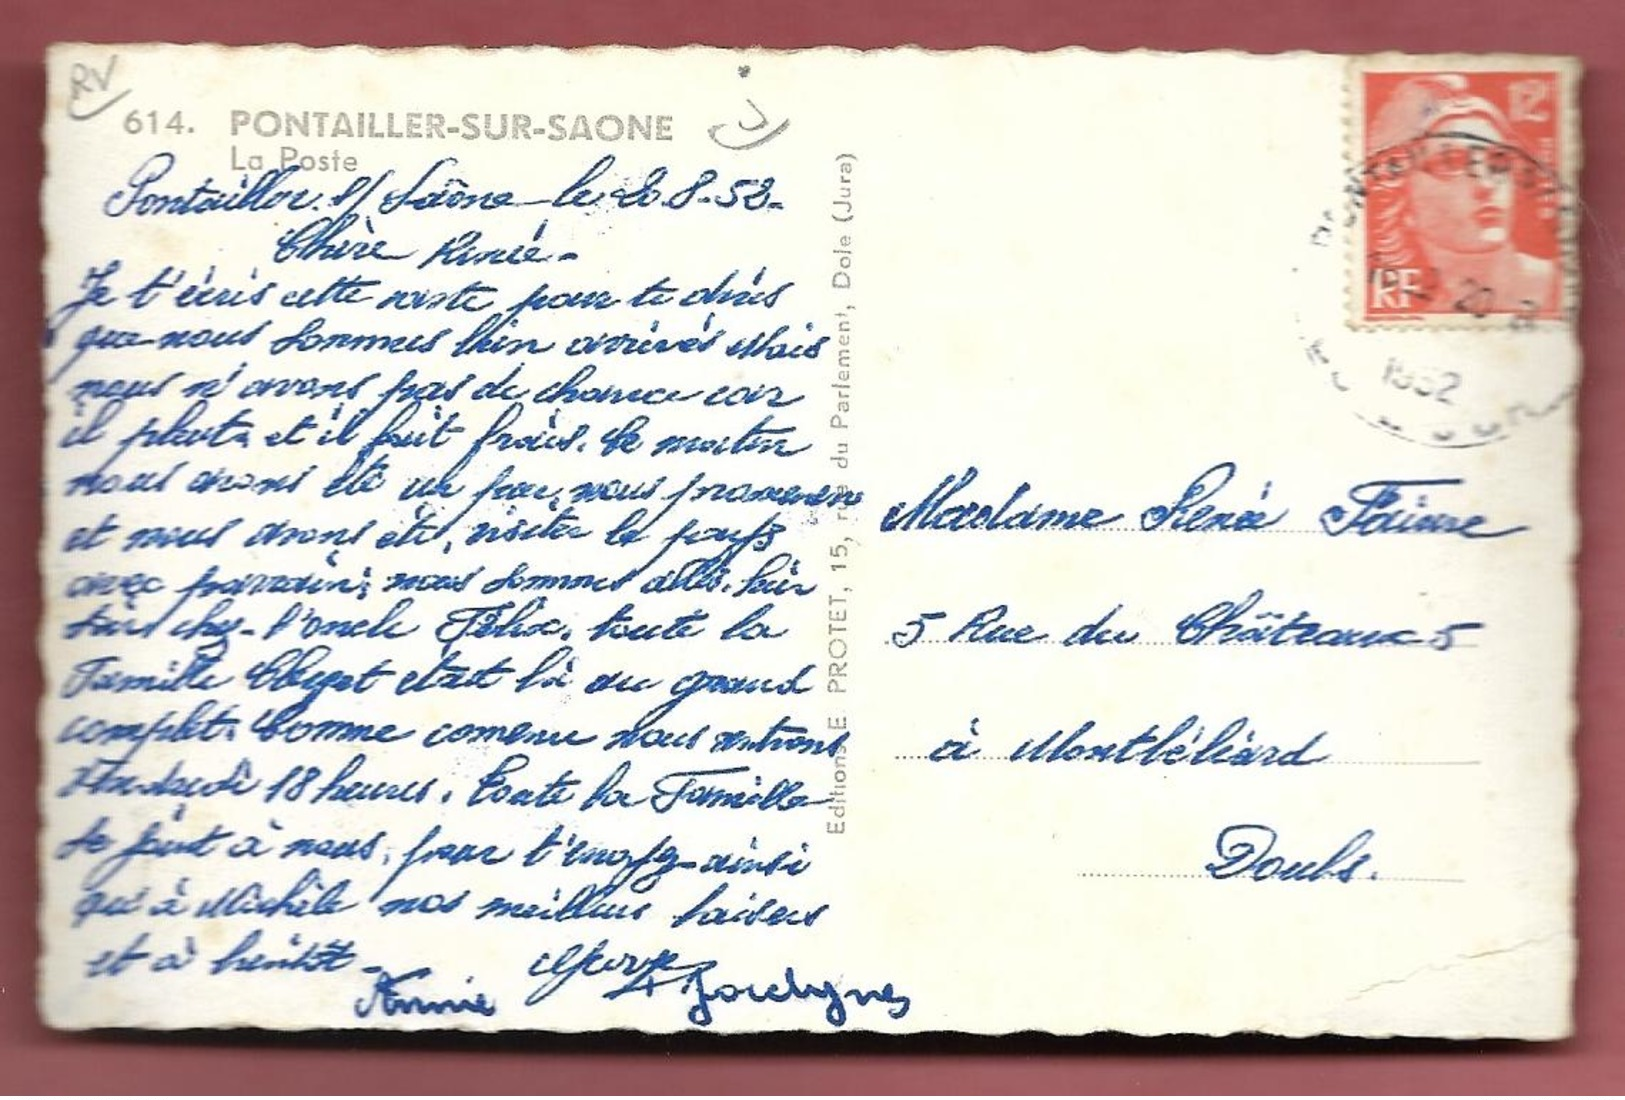 RV
614. PONTAILLER-SUR-SAONE
La Poste
Pontailler s/ Saône le 20.8.52.
Chère Renée -
Je t'écris cette carte pour te dire
que nous sommes bien arrivés Mais
nous n'avons pas de chance car
il pleut, et il fait frais. Ce matin
nous avons été un peu, nous promener
et nous avons été, visiter le pays
avec parrain; nous sommes allés, hier
soir chez l'oncle Félix, toute la
Famille était là au grand
complet. Comme convenu nous rentrons
Vendredi 18 heures. Toute la Famille
se joint à nous, pour t'envoyer ainsi
qu'à Michèle nos meilleurs baisers
et à bientôt -
Annie
+ Jocelyne
Editions E PROTET, 15, rue du Parlement, Dole (Jura)
12F
RF
20 8
1952
Madame Renée
5 Rue du Château 5
à Montbéliard
Doubs.